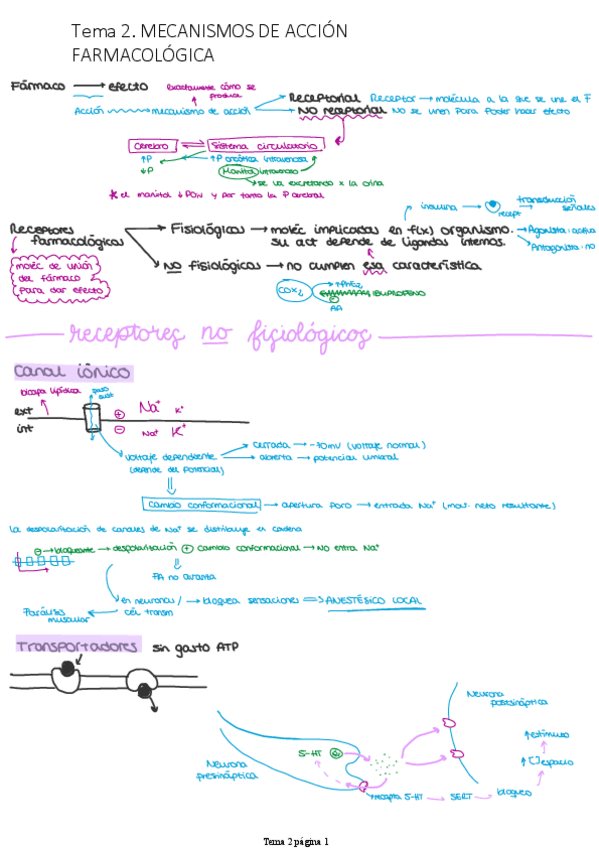 Tema 2. MECANISMOS DE ACCIÓN
FARMACOLÓGICA
Fármaco → efecto
exactamente cómo se
produce
Acción → mecanismo de acción
Receptorial Receptor → molécula a la que se une el F
NO receptorial No se unen para poder hacer efecto
Cerebro Sistema circulatorio
↑P ↑P oncótica intravenosa
↓P Manitol intravenoso
→ se va excretando x la orina
* el manitol ↓ POIV y por tanto la P cerebral
insulina → recept
transducción
señales
Receptores
farmacológicos
Fisiológicos → moléc implicadas en f(x) organismo.
su act depende de ligandos internos.
→ Agonista · activa
→ Antagonista · no
moléc de unión
del fármaco
para dar efecto
NO fisiológicos → no cumplen esa característica
COX2 ↑PGE2
IBUPROFENO
AA
receptores no fisiológicos
Canal iónico
bicapa lipídica
paso
ext
int
⊕ Na+ K+
⊖ Na+ K+
voltaje dependiente
(depende del potencial)
cerrada → -70mV (voltaje normal)
abierta → potencial umbral
cambio conformacional → apertura poro → entrada Na+ (mov. neto resultante)
la despolarización de canales de Na+ se distribuye en cadena
⊖ → bloqueante → despolarización ⊕ cambio conformacional → NO entra Na+
PA no avanza
en neuronas / → bloquea sensaciones ⇒ ANESTÉSICO LOCAL
cél transm
Parálisis
muscular
Transportadores sin gasto ATP
Neurona
postsináptica
5-HT
Neurona
presináptica
recapta 5-HT → SERT → bloqueo
↑ [] espacio
↑ estímulo
Tema 2 página 1